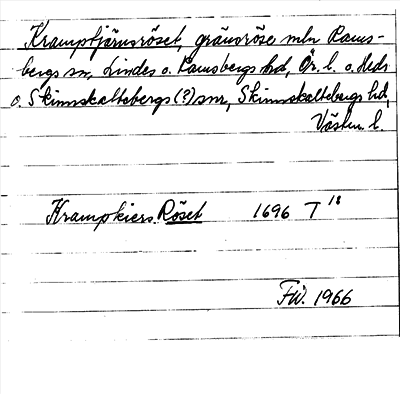 Krampfjärnsröset, gränsröse mln Rams-
bergs sn, Lindes o. Ramsbergs hd, Ör. l. o. Heds
o. Skinnskattebergs (?) snr, Skinnskattebergs hd,
Västm. l.
Krampkiers Röset 1696 T 18
FW. 1966